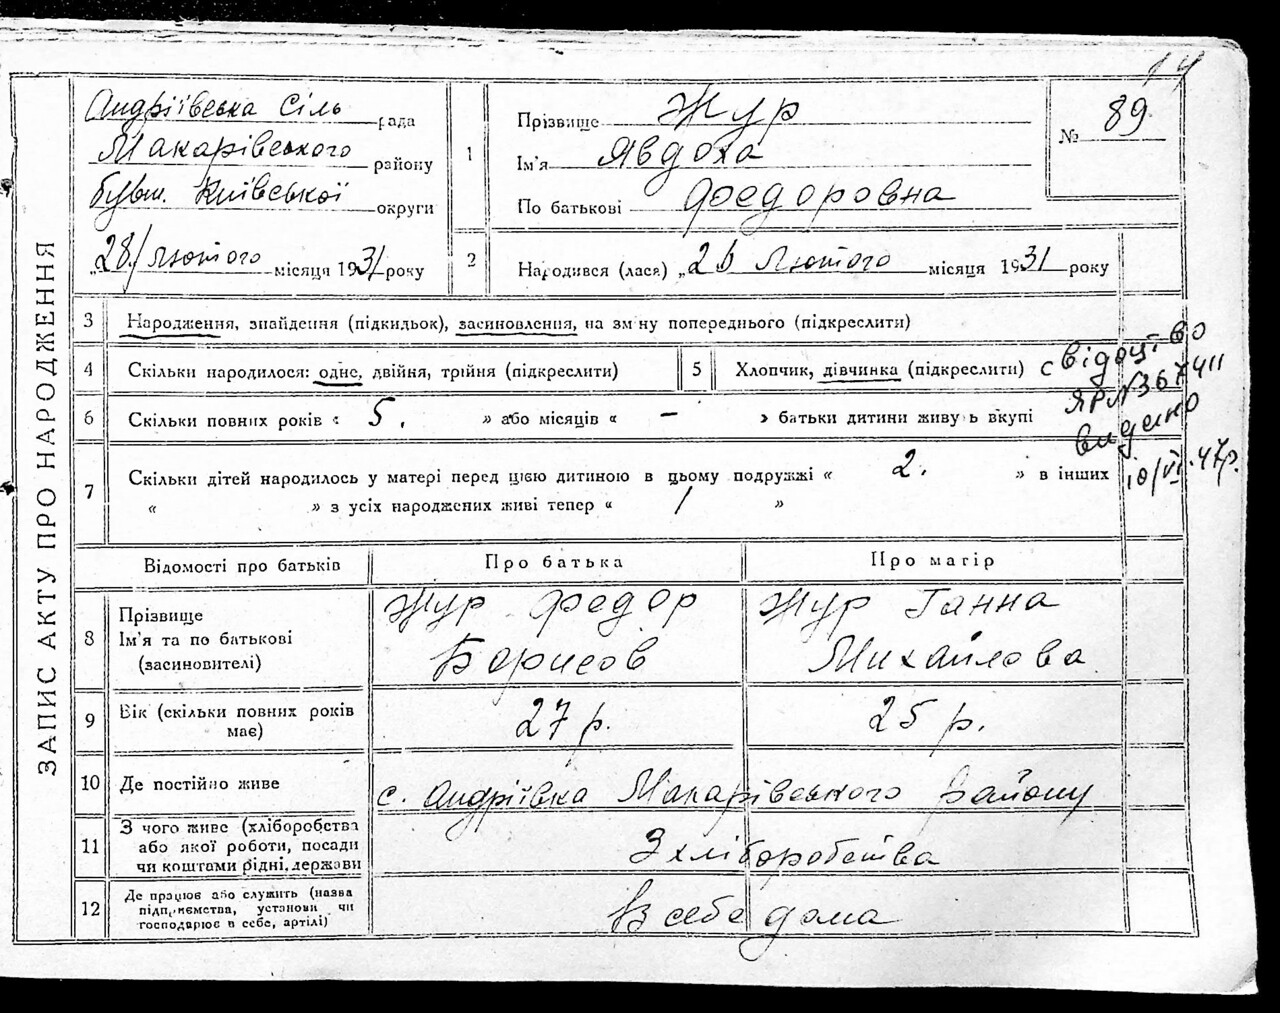 14
ЗАПИС АКТУ ПРО НАРОДЖЕННЯ
Андріївська Сіль рада
Макарівського району
бувш. Київської округи
„28/ Лютого місяця 1931 року
1
Прізвище Жур
Ім'я Явдоха
По батькові Федоровна
№ 89
2
Народився (лася) „26 Лютого місяця 1931 року
3 Народження, знайдення (підкидьок), засиновлення, на зміну попереднього (підкреслити)
4 Скільки народилося: одне, двійня, трійня (підкреслити)
5 Хлопчик, дівчинка (підкреслити)
свідоцтво
ЯР №367411
видано
10/VI.47р.
6 Скільки повних років « 5. » або місяців « – » батьки дитини живуть вкупі
7 Скільки дітей народилось у матері перед цією дитиною в цьому подружжі « 2. » в інших
« » з усіх народжених живі тепер « 1 »
Відомості про батьків Про батька Про матір
8 Прізвище
Ім'я та по батькові
(засиновителі)
Жур Федор
Борисов
Жур Ганна
Михайлова
9 Вік (скільки повних років
має)
27 р. 25 р.
10 Де постійно живе с. Андріївка Макарівського Району
11 З чого живе (хліборобства
або якої роботи, посади
чи коштами рідні, держави
З хліборобства
12 Де працює або служить (назва
підприємства, установи чи
господарює в себе, артілі)
В себе дома